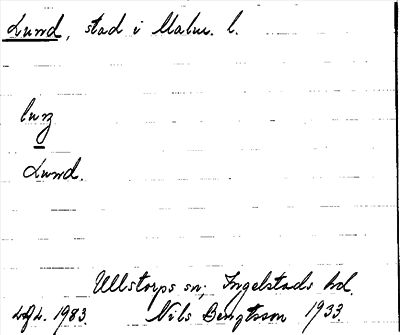 Lund, stad i Malm. l.
Lund.
Ullstorps sn, Ingelstads hd.
1983. Nils Bengtsson 1933.